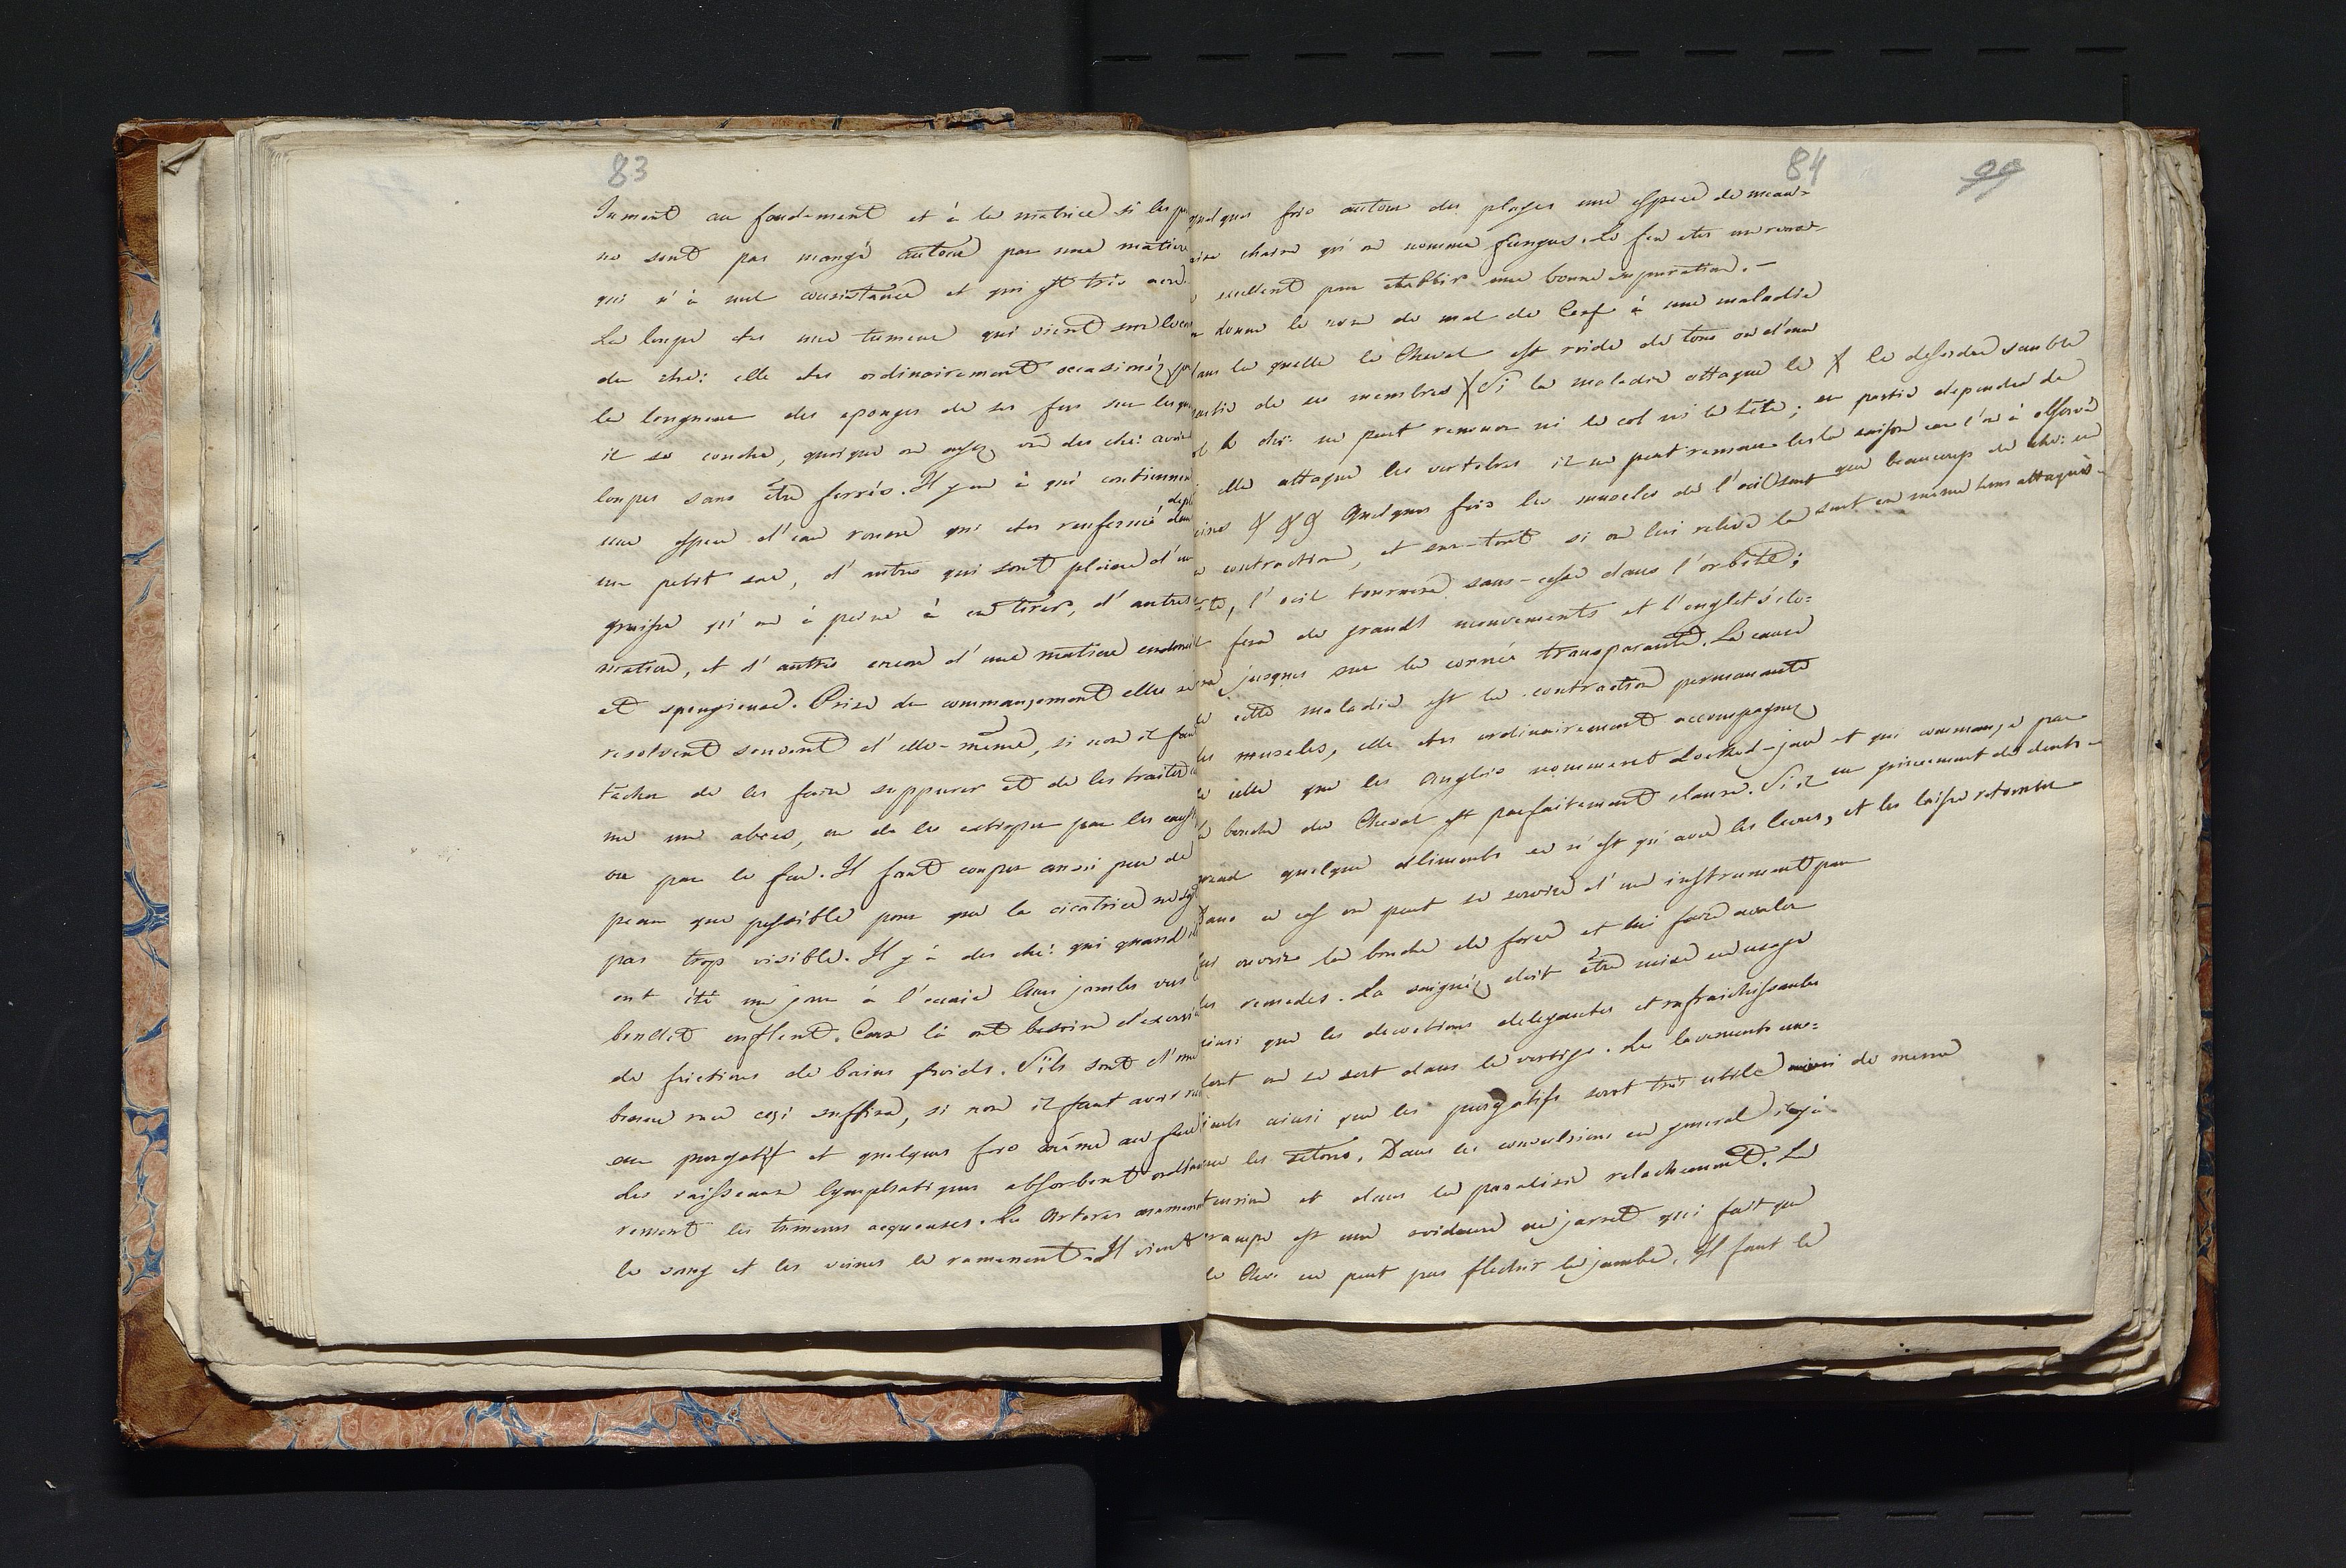 83
Jument au fondement et à la matrice si les
ne sont pas mangé autour par une matiere
qui n'à nul consistance et qui est très acre.
La loupe des une tumeur qui vient sur le
du che: elle des ordinairement occasionéz
la longueur des eponges de ses fers sur
il se couche, quoique on ayez vû des che: avoir
loupes sans être ferrés. Il y en à qui contiennent
une espece d'eau rousse qui des renfermé dans
un petit sac, d'autres qui sont pleine d'une
graisse qu'on à peine à en tirer, d'autres
et d'autres encore d'une matiere
et spongieuse. Prise du commançement elles se
resolvent souvent d'elle-même, si non il faut
tâcher de les faire suppurer et de les traiter
me un abces, ou de les extirper par les
ou par le feu. Il faut couper aussi peu de
peau que possible pour que la cicatrice ne
pas trop visible. Il y à des che: qui quand
ont été un jour à l'ecurie leurs jambes
enflent. Ceux là ont besoin d'exercice
de frictions de bains froids. S'ils sont d'une
bonne race cesi suffira, si non il faut avoir
au purgatif et quelques fois même au feu
des vaisseaux lymphatiques absorbent
rement les tumeurs acqueuses. Les Arteres amenent
le sang et les veines le ramenent. Il vient
84
99
quelques fois autour des playes une espece de mau=
chaire qu'on nomme fungus. Le feu des un
excellent pour etablir une bonne supuration. —
donne le nom de mal de Cerf à une maladie
dans la quelle le Cheval est roide de tous ou d'une
partie de ses membres X Si la maladie attaque le X le desordre semble
le che: ne peut remuer ni le col ni la tête; en partie dependre de
elle attaque les vertebres il ne peut remuer les la saison car l'on à observé
Quelques fois les muscles de l'oeil sont que beaucoup de che: en
contraction, et sur-tout si on lui releve la sont en même tems attaqués.
l'oeil tournera sans-cesse dans l'orbite;
fera de grands mouvements et l'onglet
jusques sur la cornée transparente. La cause
cette maladie est la contraction permanante
des muscles, elle des ordinairement accompagnez
de celle que les Anglois nomment Locked-jaw et qui commançe par
la bouche du Cheval est parfaitement clause. S'il un grincement de dents
prend quelque aliments ce n'est qu'avec les levres, et les laisse retomber
Dans ce cas on peut se servire d'un instrument pour
lui ouvrire la bouche de force et lui faire avaler
les remedes. La saignéz doit être mise en usage
ainsi que les decoctions delayantes et rafraichissantes
dont on se sert dans le vertige. Les lavements
ainsi que les purgatifs sont très utile de meme
que les setons. Dans les convulsions en general il y à
tension et dans la paralisie relachement. La
crampe est une roideure au jarret qui fait que
le Che: ne peut pas flechir la jambe. Il faut le